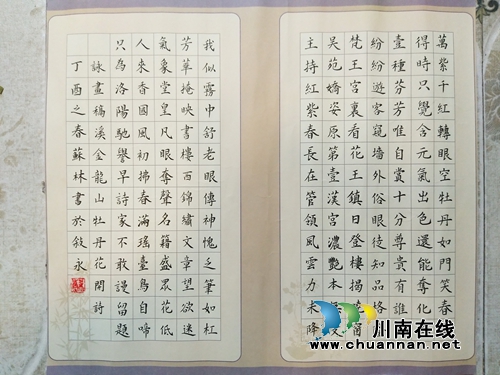 萬紫千紅轉眼空牡丹如門笑春
得時只覺含元氣出色還能奪化
壹種芬芳唯自賞十分尊貴有誰
紛紛遊客窺墻外俗眼徒知品格
梵王宮裏看花王鎮日登樓揭
吳苑嬌姿原第壹漢宮濃艷本
主持紅紫春長在管領風雲力未降
我似霧中舒老眼傳神愧乏筆如杠
芳華掩映書樓百錦繡文章望欲迷
氣象堂皇凡眼奪聲名籍盛眾花低
人來香國風初拂春滿瑤臺鳥自啼
只為洛陽馳譽早詩家不敢漫留題
詠畫稿溪金龍山牡丹花開詩
丁酉之春蘇林書於敘永
川南在线
www.chuannan.net